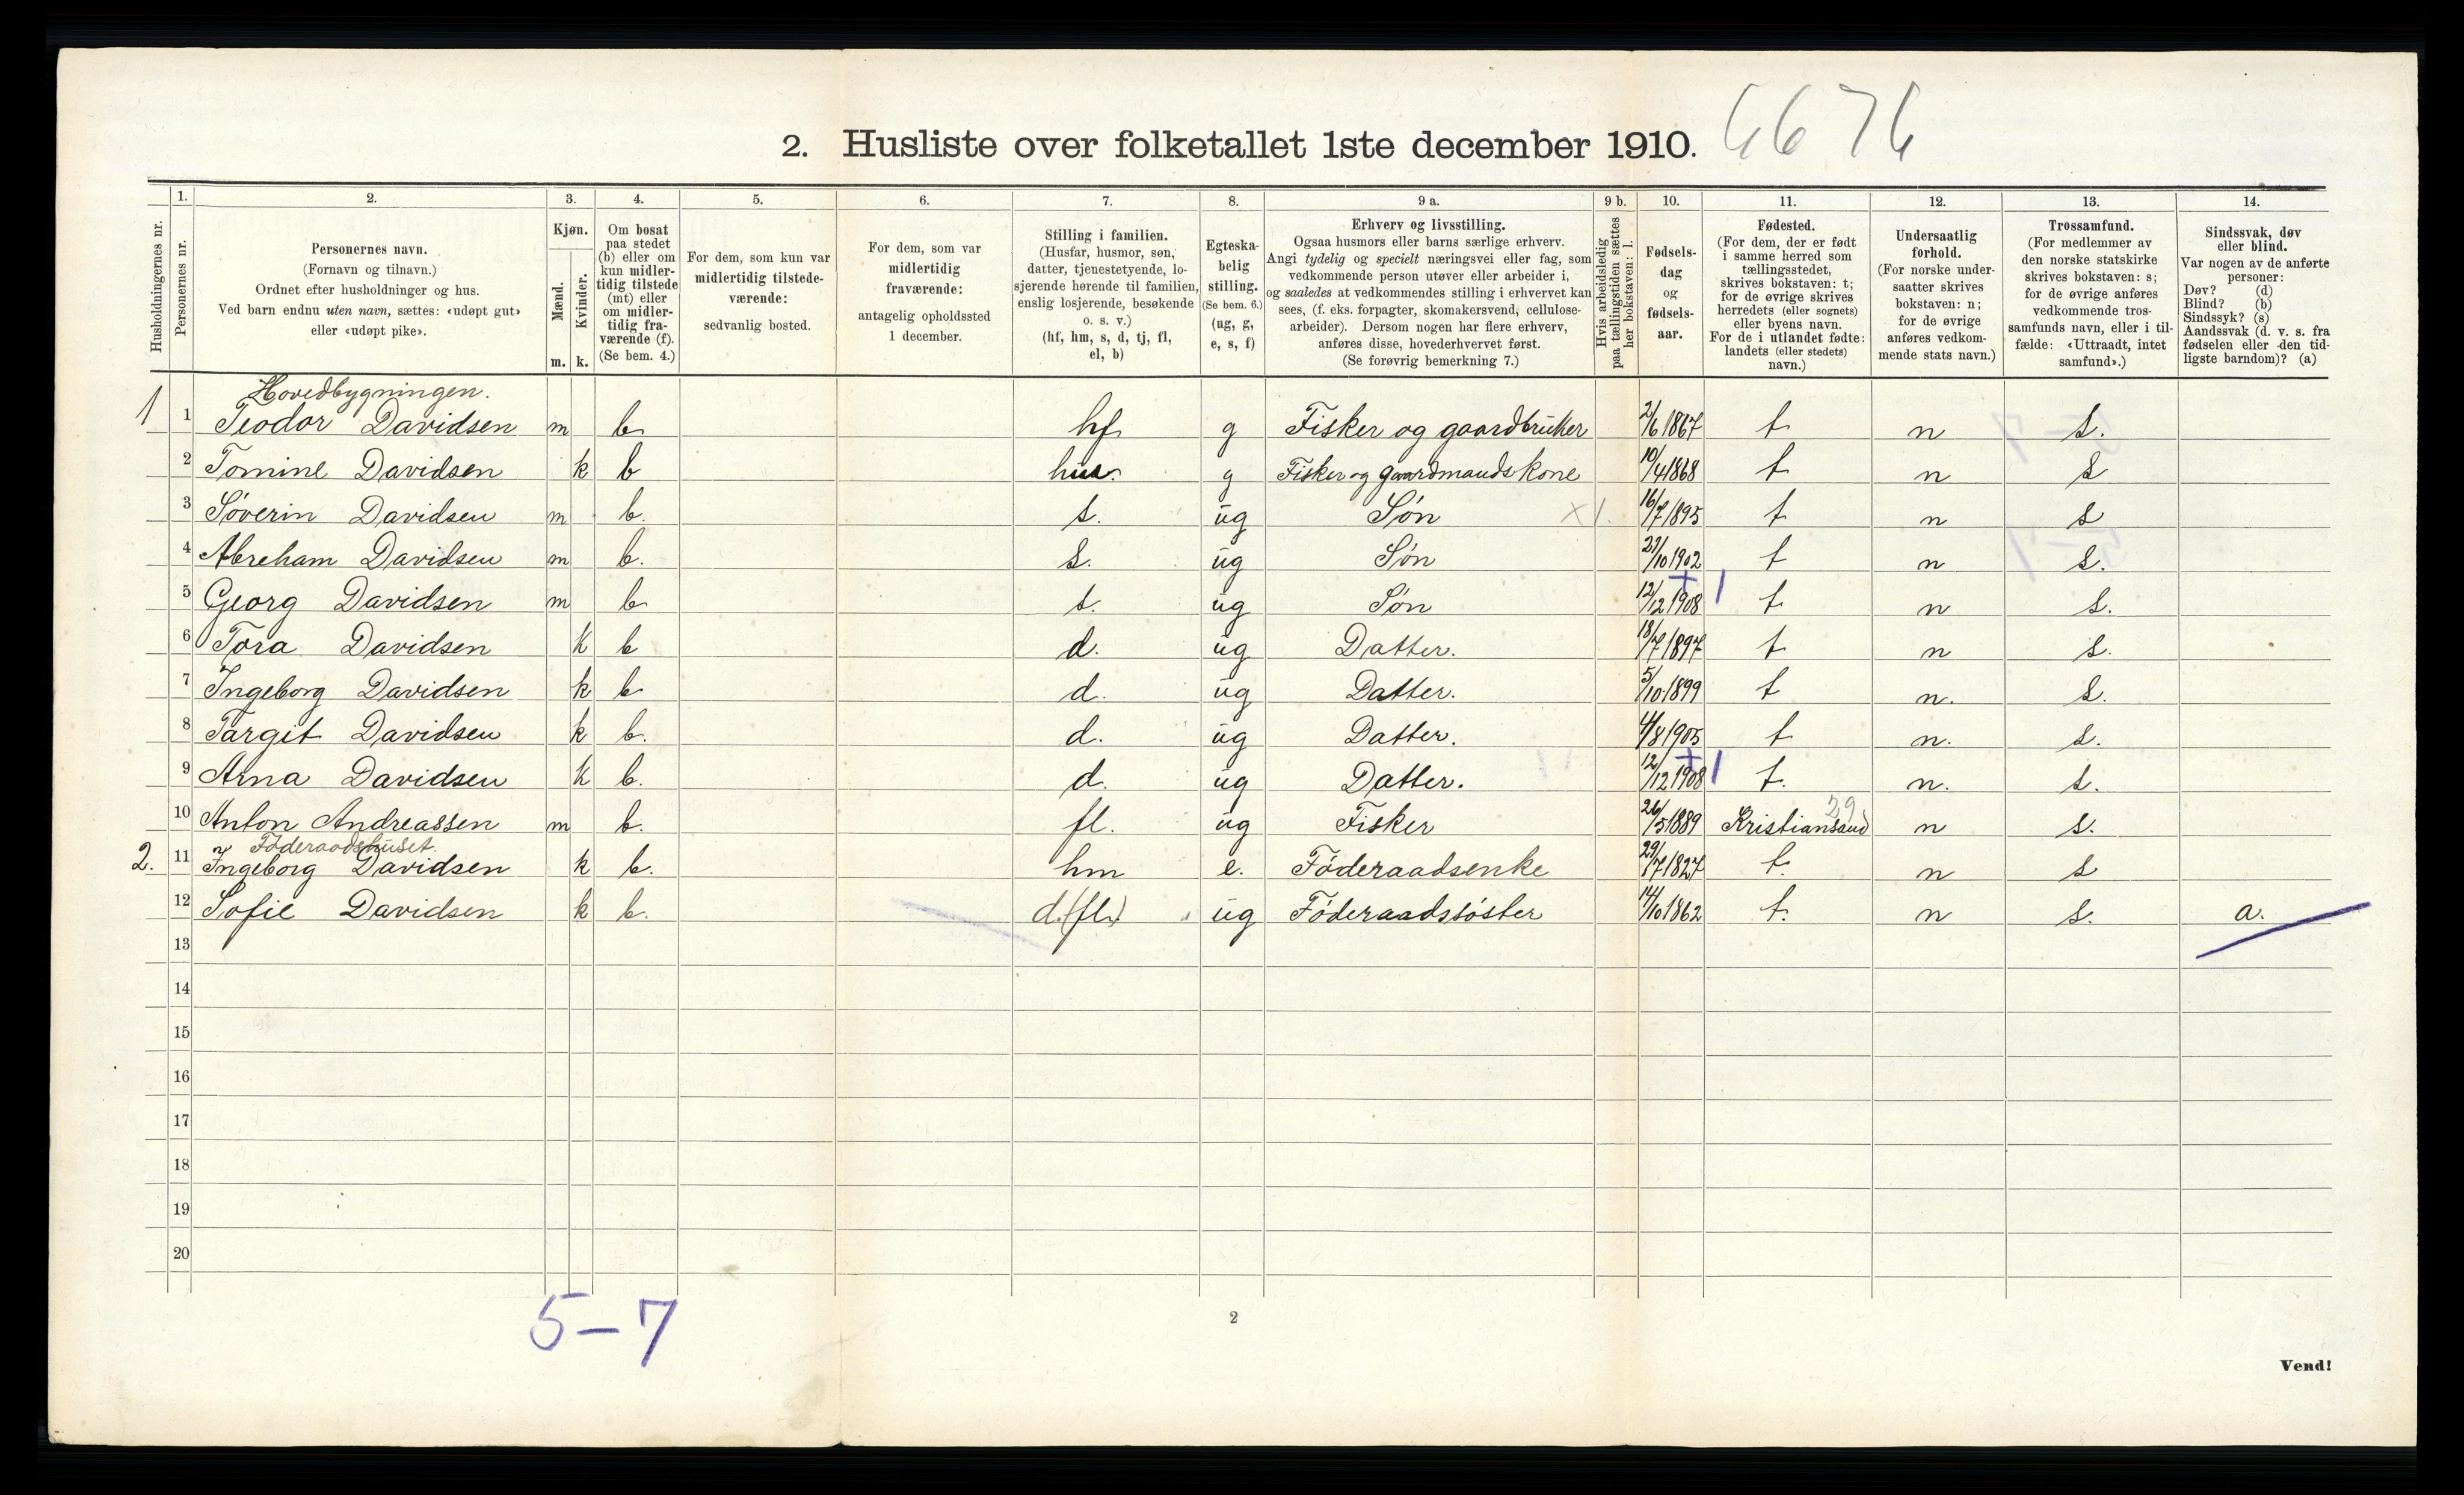 2. Husliste over folketallet 1ste december 1910.
Husholdningernes nr.
1.
Personernes nr.
2.
Personernes navn.
(Fornavn og tilnavn.)
Ordnet efter husholdninger og hus.
Ved barn endnu uten navn, sættes: «udøpt gut»
eller «udøpt pike».
3.
Kjøn.
Mænd.
Kvinder.
m. k.
4.
Om bosat
paa stedet
(b) eller om
kun midler-
tidig tilstede
(mt) eller
om midler-
tidig fra-
værende (f).
(Se bem. 4.)
5.
For dem, som kun var
midlertidig tilstede-
værende:
sedvanlig bosted.
6.
For dem, som var
midlertidig
fraværende:
antagelig opholdssted
1 december.
7.
Stilling i familien.
(Husfar, husmor, søn,
datter, tjenestetyende, lo-
sjerende hørende til familien,
enslig losjerende, besøkende
o. s. v.)
(hf, hm, s, d, tj, fl,
el, b)
8.
Egteska-
belig
stilling.
(Se bem. 6.)
(ug, g,
e, s, f)
9 a.
Erhverv og livsstilling.
Ogsaa husmors eller barns særlige erhverv.
Angi tydelig og specielt næringsvei eller fag, som
vedkommende person utøver eller arbeider i,
og saaledes at vedkommendes stilling i erhvervet kan
sees, (f. eks. forpagter, skomakersvend, cellulose-
arbeider). Dersom nogen har flere erhverv,
anføres disse, hovederhvervet først.
(Se forøvrig bemerkning 7.)
9 b.
Hvis arbeidsledig
paa tællingstiden sættes
her bokstaven: l.
10.
Fødsels-
dag
og
fødsels-
aar.
11.
Fødested.
(For dem, der er født
i samme herred som
tællingsstedet,
skrives bokstaven: t;
for de øvrige skrives
herredets (eller sognets)
eller byens navn.
For de i utlandet fødte:
landets (eller stedets)
navn.)
12.
Undersaatlig
forhold.
(For norske under-
saatter skrives
bokstaven: n;
for de øvrige
anføres vedkom-
mende stats navn.)
13.
Trossamfund.
(For medlemmer av
den norske statskirke
skrives bokstaven: s;
for de øvrige anføres
vedkommende tros-
samfunds navn, eller i til-
fælde: «Uttraadt, intet
samfund».)
14.
Sindssvak, døv
eller blind.
Var nogen av de anførte
personer:
Døv? (d)
Blind? (b)
Sindssyk? (s)
Aandssvak (d. v. s. fra
fødselen eller den tid-
ligste barndom)? (a)
Hovedbygningen.
1 1 Teodor Davidsen m b hf g Fisker og gaardbruker 2/6 1867 t n s.
2 Tomine Davidsen k b g Fisker og gaardmands kone 10/4 1868 t n s
3 Søverin Davidsen m b. s. ug Søn x 1. 16/7 1895 t n s
4 Abreham Davidsen m b. s. ug Søn /10 1902 t n s.
5 Georg Davidsen m b s. ug Søn 12/12 1908 + 1 t n s.
6 Tora Davidsen k b d. ug Datter. 18/7 1897 t n s.
7 Ingeborg Davidsen k b d. ug Datter. 5/10 1899 t n. s.
8 Targit Davidsen k b. d. ug Datter. 4/8 1905 t n. s.
9 Arna Davidsen k b. d. ug Datter. 12/12 1908 + 1 t. n. s.
10 Anton Andreassen m b. fl. ug Fisker 26/5 1889 Kristiansand 29 n s.
Føderaadshuset.
2. 11 Ingeborg Davidsen k b. hm e. Føderaadsenke 29/7 1827 t. n s
12 Sofie Davidsen k b. d. (fl.) ug Føderaadssøster 14/10 1862 t. n s. a.
13
14
15
16
17
18
19
20
5-7
2
Vend!